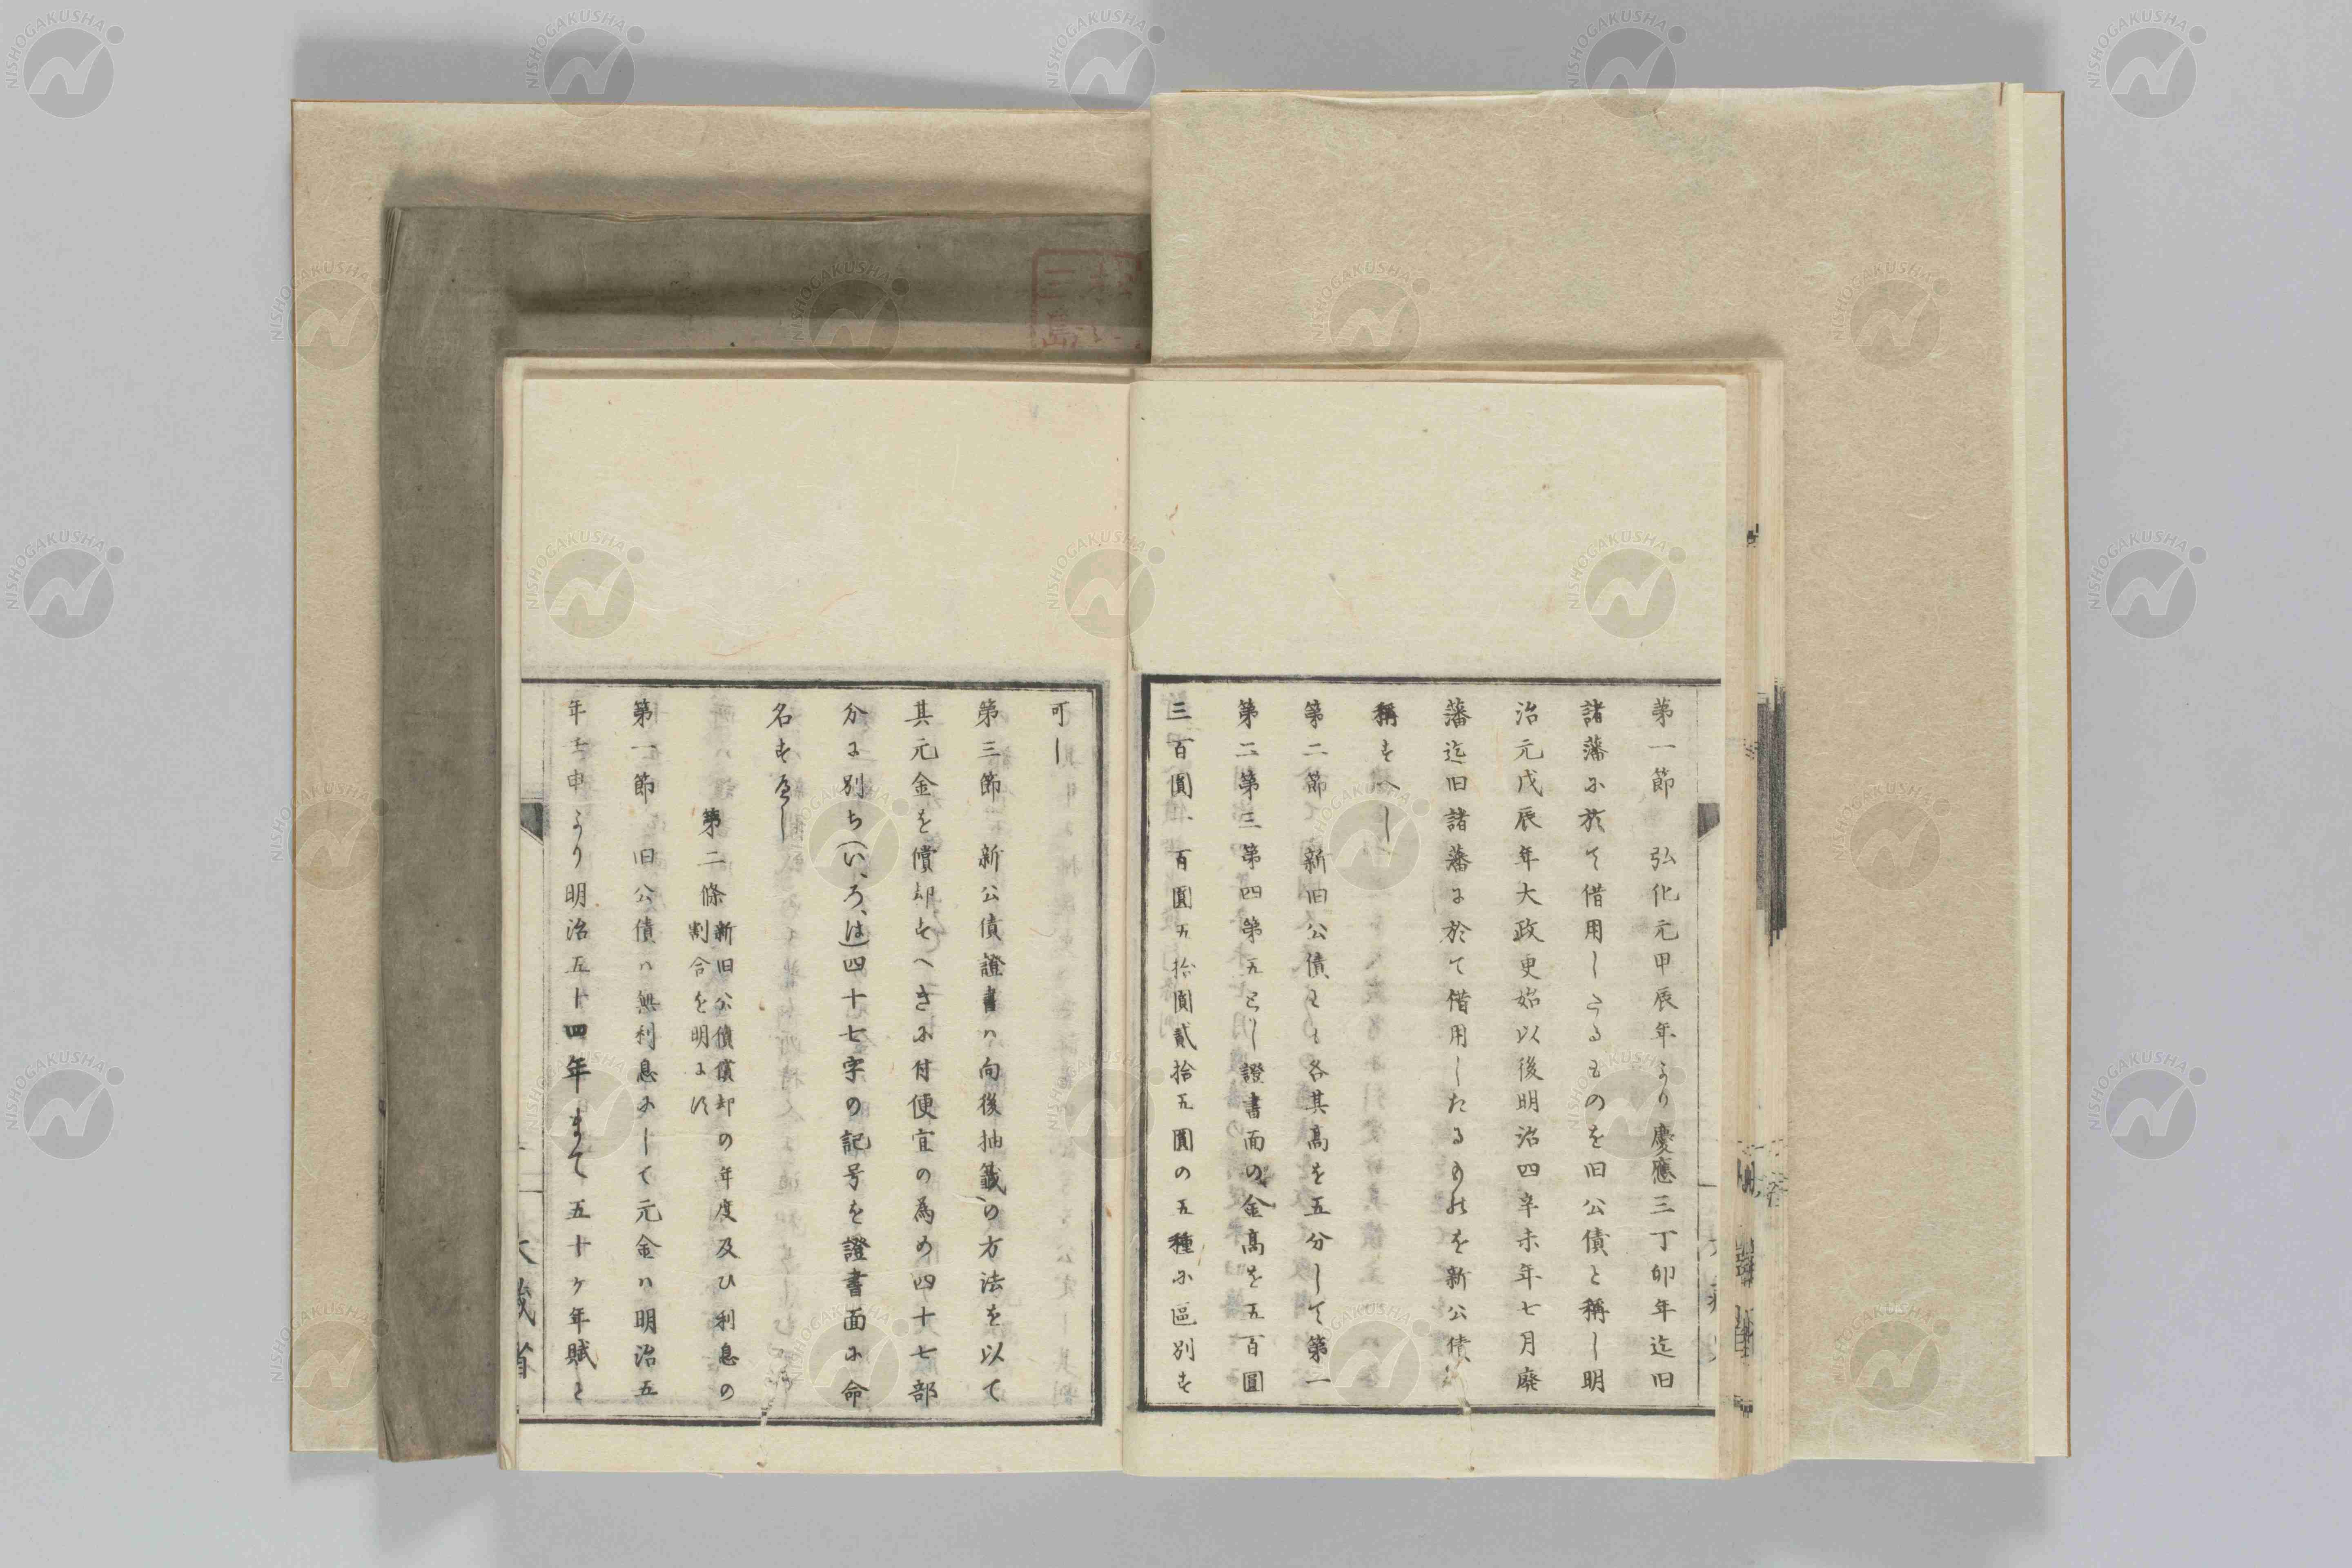 第一節　弘化元甲辰年より慶應三丁卯年迄旧
諸藩に於て借用したるものを旧公債と稱し明
治元戊辰年大政更始以後明治四辛未年七月廢
藩迄旧諸藩に於て借用したるものを新公債と
稱すへし
第二節　新旧公債とも各其高を五分して第一
第二第三第四第五とし證書面の金高を五百圓
三百圓、百圓五拾圓貳拾五圓の五種に區別す
可し
第三節　新公債證書ハ向後抽籤の方法を以て
其元金を償却すへきに付便宜の為め四十七部
分に別ち(い、ろ、は)四十七字の記号を證書面に命
名すへし
第二條 新旧公債償却の年度及ひ利息の
割合を明にす
第一節　旧公債ハ無利息にして元金ハ明治五
年壬申より明治五十四年まて五十ケ年賦と
大蔵省
NISHOGAKUSHA